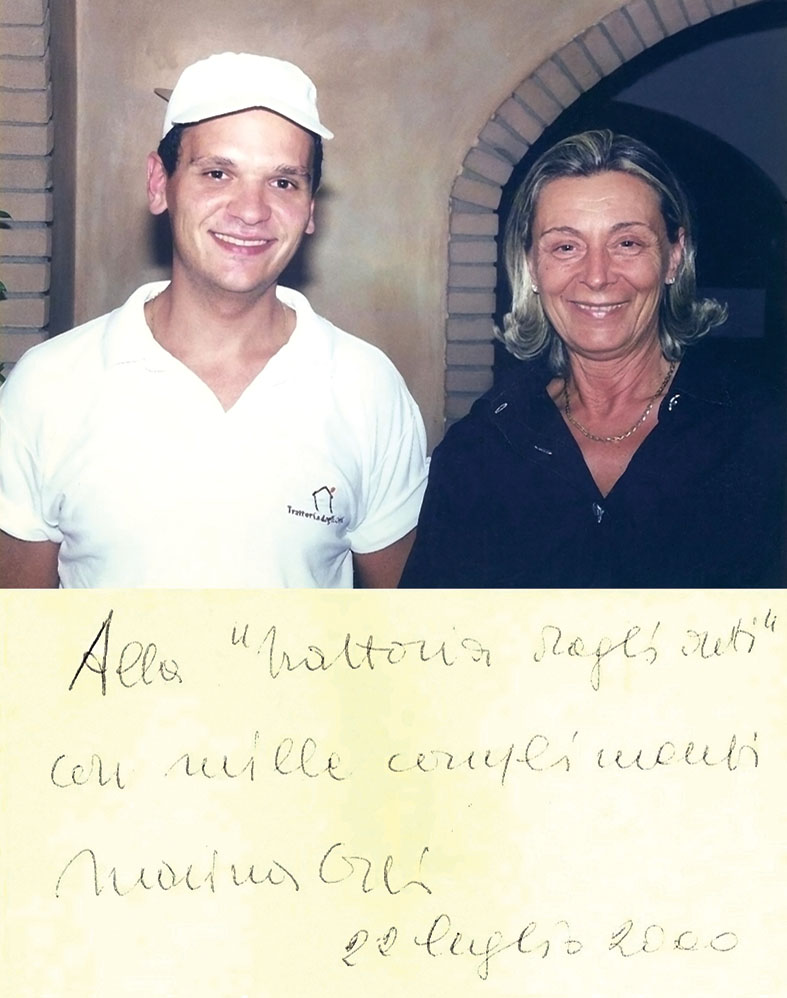 Trattoria
Alla "trattoria degli orti"
con mille complimenti
Marina
22 luglio 2000